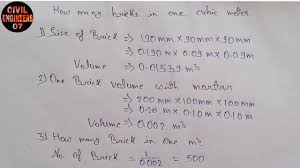 CIVIL
ENGINEERS
07
How many bricks in one cubic meter.
1) Size of Brick ⇒ 190mm × 90mm × 90mm
⇒ 0.190m × 0.09m × 0.09m
Volume ⇒ 0.01539 m³
2) One Brick volume with mortar
⇒ 200mm × 100mm × 100mm
⇒ 0.20m × 0.10m × 0.10m
Volume ⇒ 0.002 m³
3) How many Brick in one m³
No. of Brick = 1/0.002 = 500